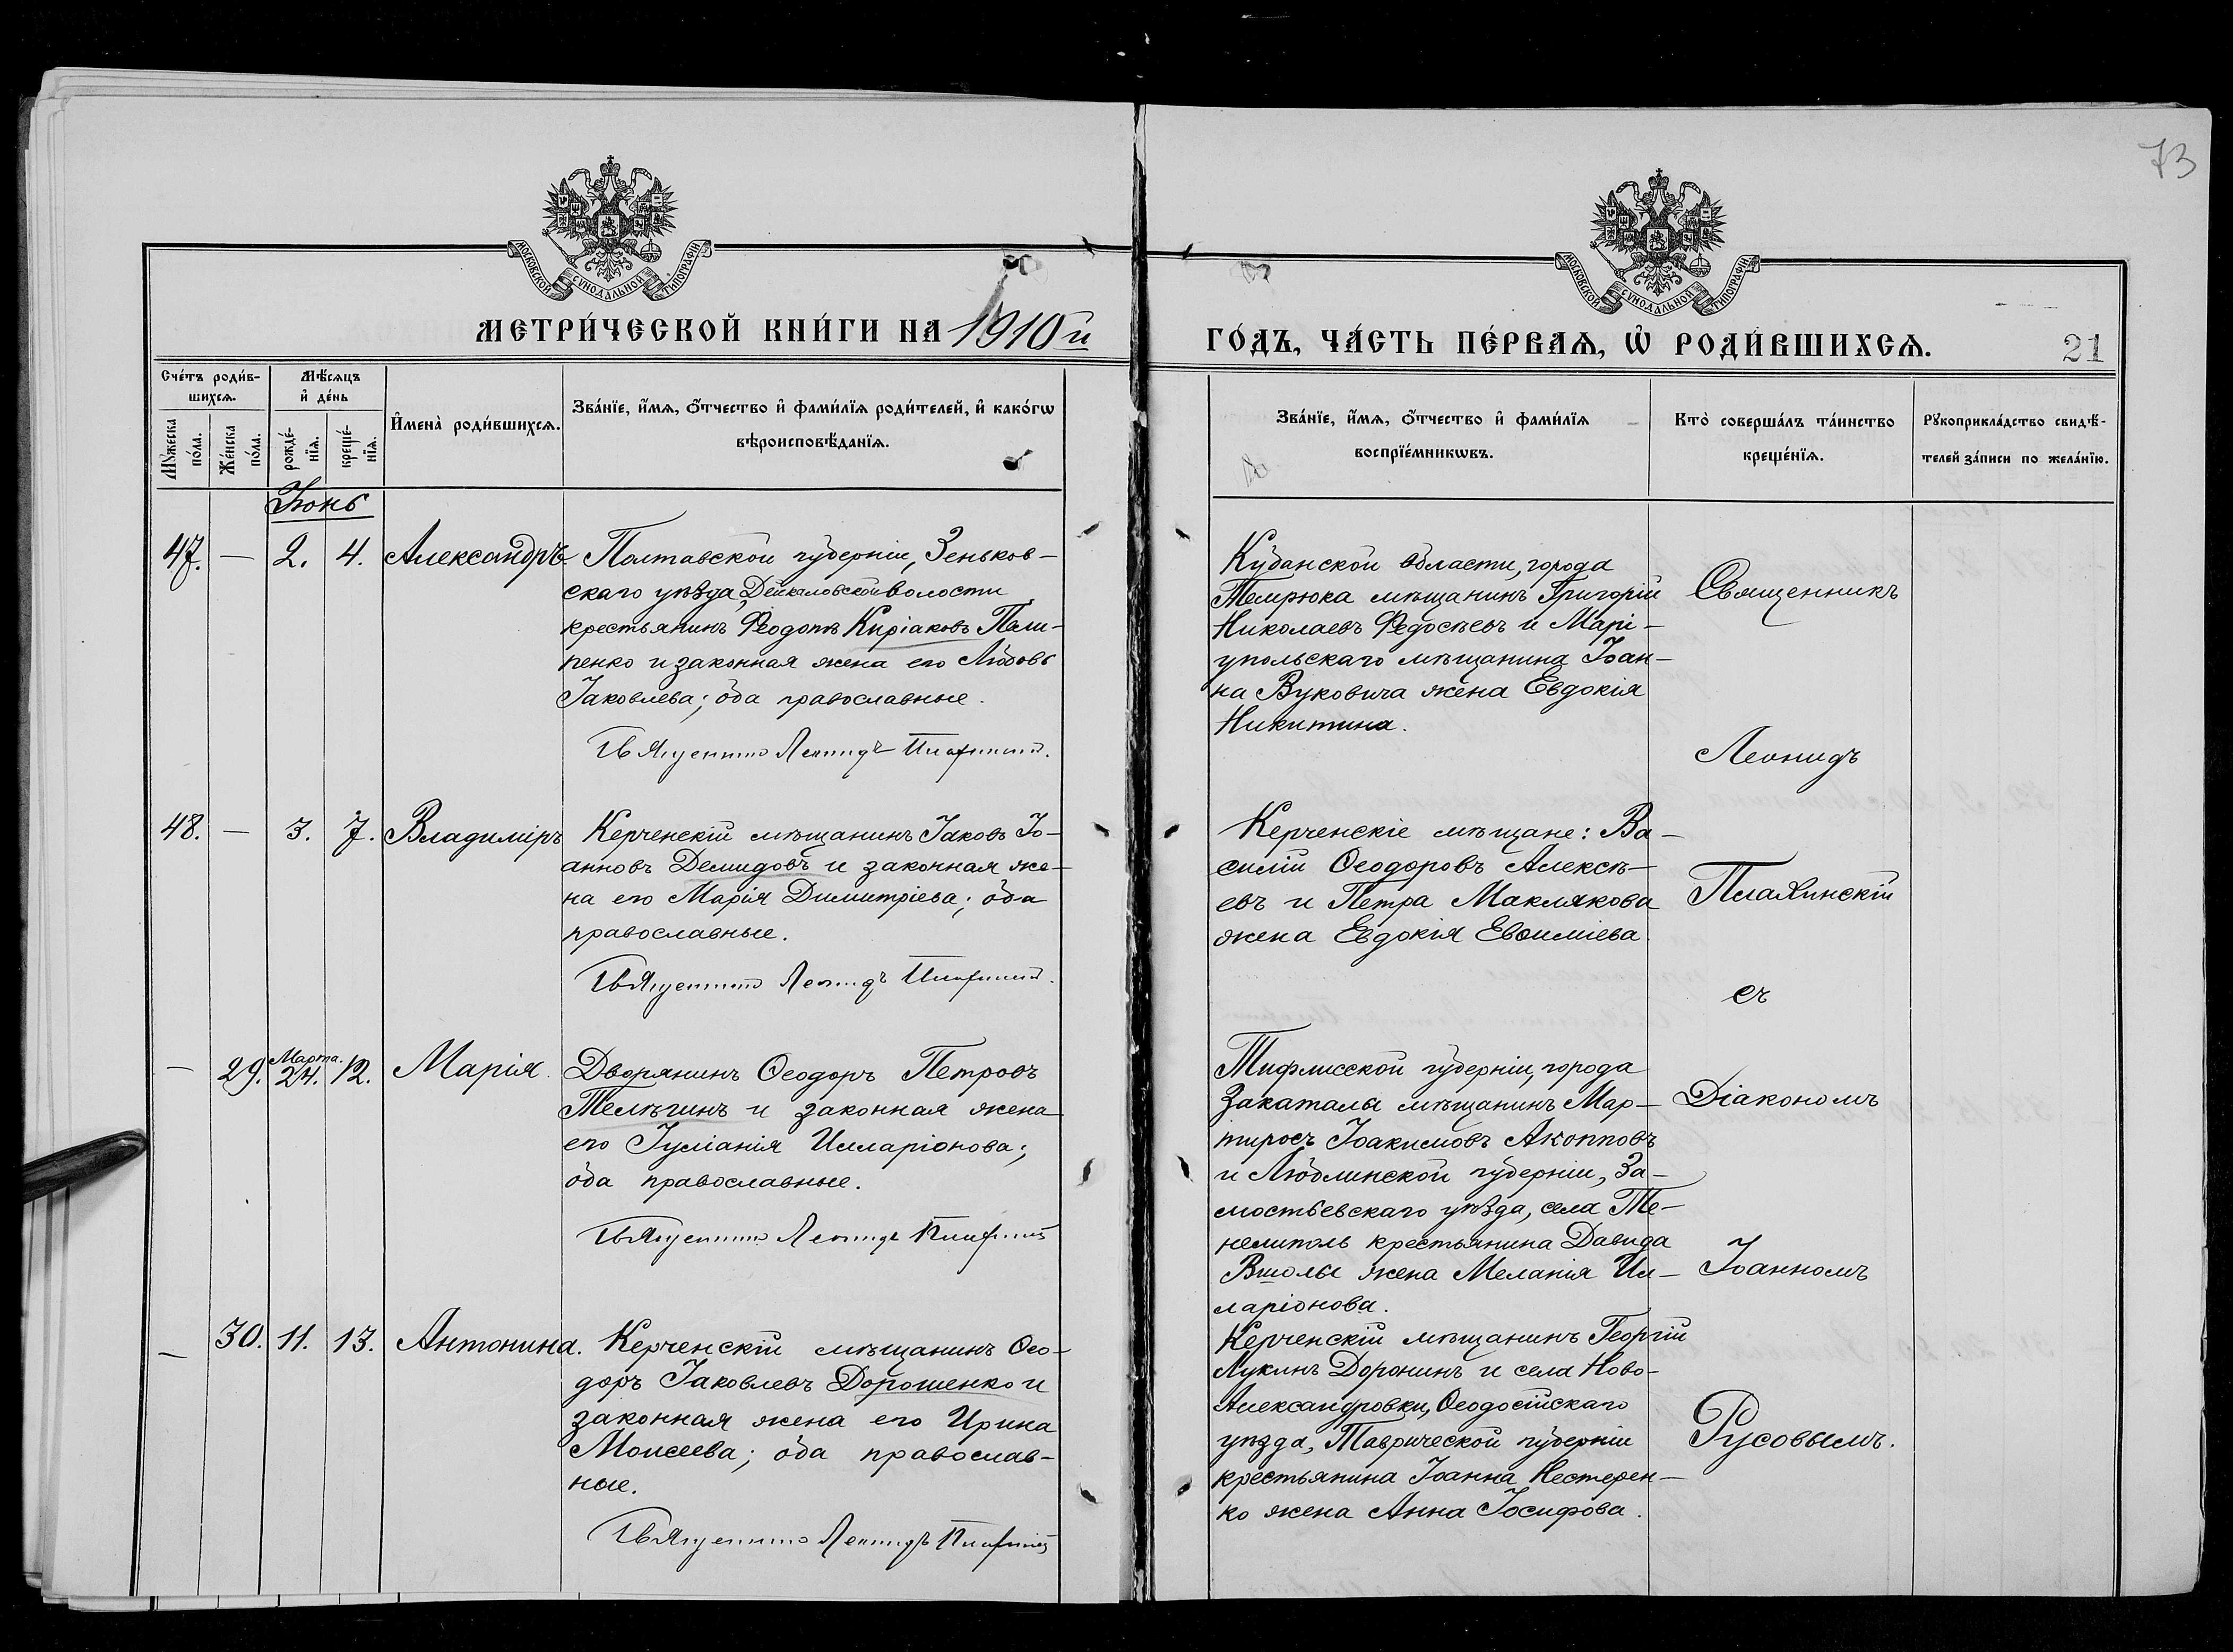 73
МОСКОВСКОЙ СѴНОДАЛЬНОЙ ТИПОГРАФІИ
МОСКОВСКОЙ СѴНОДАЛЬНОЙ ТИПОГРАФІИ
МЕТРИ́ЧЕСКОЙ КНИ́ГИ НА 1910й
ГО́ДЪ, ЧА́СТЬ ПЕ́РВАѦ, Ѡ҆ РОДИ́ВШИХСѦ.
21
Сче́тъ роди́в-
шихсѧ.
Мꙋ́жеска
по́ла.
Же́нска
по́ла.
Мѣ́сѧцъ
и҆ де́нь
рожде́-
нїѧ.
креще́-
нїѧ.
И҆мена̀ роди́вшихсѧ.
Зва́нїе, и҆́мѧ, ѻ҆́тчество и҆ фами́лїѧ роди́телей, и҆ како́гѡ
вѣроисповѣ́данїѧ.
Зва́нїе, и҆́мѧ, ѻ҆́тчество и҆ фами́лїѧ
воспрїе́мникѡвъ.
Кто̀ соверша́лъ та́инство
креще́нїѧ.
Рꙋкоприкла́дство свидѣ́-
телей за́писи по жела́нїю.
Іюнь
47. — 2. 4. Александръ.
Полтавской губерніи, Зеньков-
скаго уѣзда, Дейкаловской волости
крестьянинъ Ѳеодотъ Киріаковъ Пили-
пенко и законная жена его Любовь
Іаковлева; оба православные.
Священникъ Леонидъ Плаѳинскій.
Кубанской области, города
Темрюка мѣщанинъ Григорій
Николаевъ Федосѣевъ и Марі-
упольскаго мѣщанина Іоан-
на Вуковича жена Евдокія
Никитина.
Священникъ
Леонидъ
48. — 3. 7. Владиміръ
Керченскій мѣщанинъ Іаковъ Іо-
анновъ Демидовъ и законная же-
на его Марія Димитріева; оба
православные.
Священникъ Леонидъ Плаѳинскій.
Керченскіе мѣщане: Ва-
силій Ѳеодоровъ Алексѣ-
евъ и Петра Маклякова
жена Евдокія Евѳиміева.
Плаѳинскій
съ
— 29. Марта. 24. 12. Марія.
Дворянинъ Ѳеодоръ Петровъ
Телѣгинъ и законная жена
его Іуліанія Илларіонова;
оба православные.
Священникъ Леонидъ Плаѳинскій
Тифлисской губерніи, города
Закаталы мѣщанинъ Мар-
тиросъ Іоакимовъ Акопповъ
и Люблинской губерніи, За-
мостьевскаго уѣзда, села Те-
нелиполь крестьянина Давида
Вшолы жена Меланія Ил-
ларіонова.
Діакономъ
Іоанномъ
— 30. 11. 13. Антонина.
Керченскій мѣщанинъ Ѳео-
доръ Іаковлевъ Дорошенко и
законная жена его Ирина
Моисеева; оба православ-
ные.
Священникъ Леонидъ Плаѳинскій
Керченскій мѣщанинъ Георгій
Лукинъ Доронинъ и села Ново-
Александровки, Ѳеодосійскаго
уѣзда, Таврической губерніи
крестьянина Іоанна Нестерен-
ко жена Анна Іосифова.
Русовымъ.